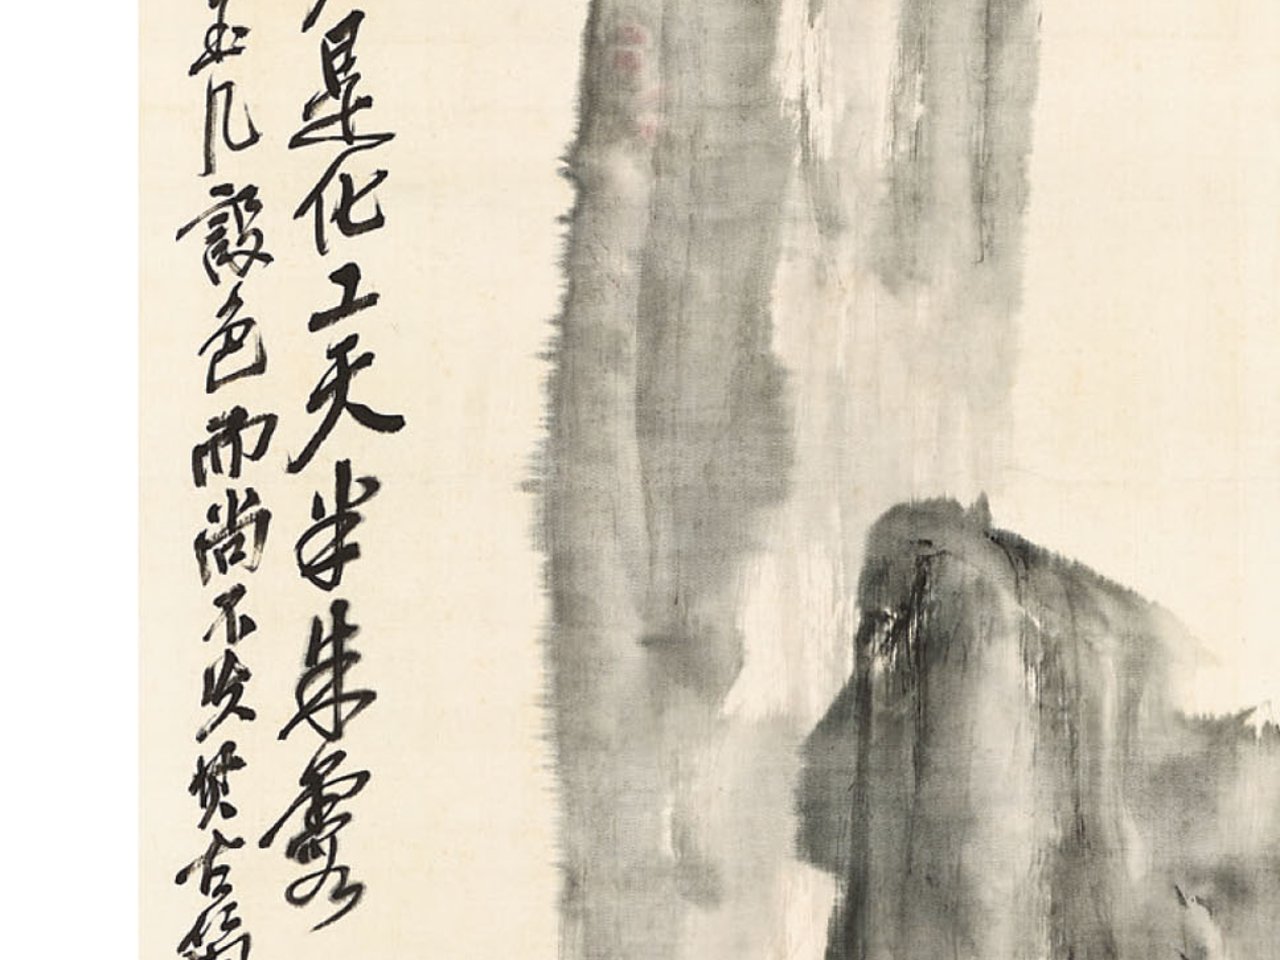 是化工天半朱霞
几設色而尚不焚古